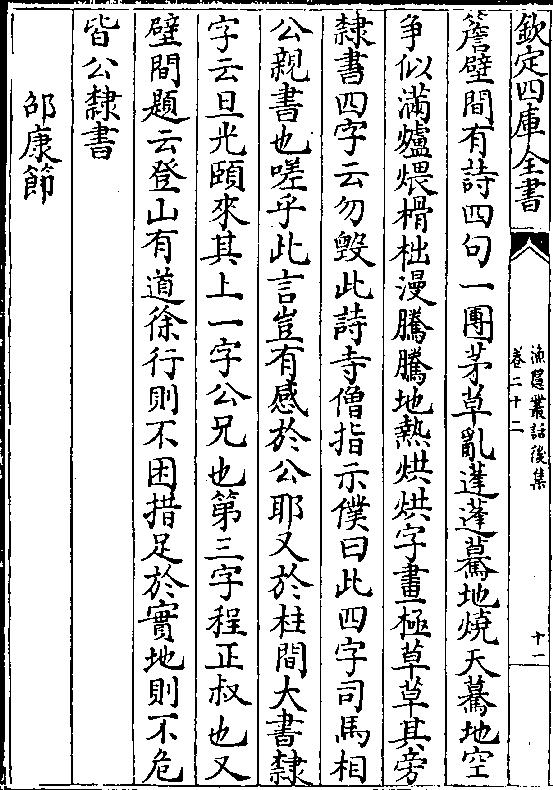 欽定四庫全書
漁隱叢話後集
卷二十二
十一
簷壁間有詩四句一團茅草亂蓬蓬驀地燒天驀地空
爭似滿爐煨榾柮漫騰騰地熱烘烘字畫極草草其旁
隸書四字云勿毀此詩寺僧指示僕曰此四字司馬相
公親書也嗟乎此言豈有感於公耶又於柱間大書隸
字云旦光頤來其上一字公兄也第三字程正叔也又
壁間題云登山有道徐行則不困措足於實地則不危
皆公隸書
邵康節